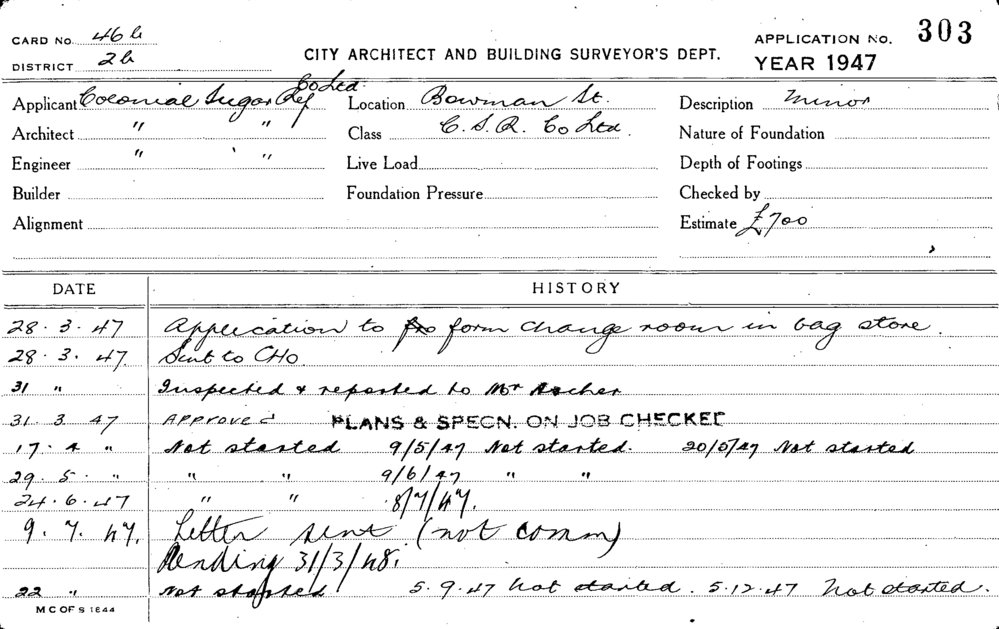 CARD No. 46b
DISTRICT 2b
CITY ARCHITECT AND BUILDING SURVEYOR'S DEPT.
APPLICATION No. 303
YEAR 1947
Applicant Colonial Sugar Ref Co Ltd. Location Bowman St. Description Minor
Architect " " Class C.S.R. Co Ltd. Nature of Foundation
Engineer " " Live Load Depth of Footings
Builder Foundation Pressure Checked by
Alignment Estimate £700
DATE HISTORY
28.3.47 Application to form change room in bag store.
28.3.47. Sent to CHo.
31 " Inspected & reported to Mr
31.3.47 Approved PLANS & SPECN. ON JOB CHECKED
17.4 " Not started 9/5/47 Not started. 20/5/47 Not started
29.5. " " " 9/6/47 " "
24.6.47 " " 8/7/47.
9.7.47. Letter sent (not comm)
Pending 31/3/48.
22 " Not started 5.9.47 Not started. 5.12.47 Not started.
M C OF S 1844